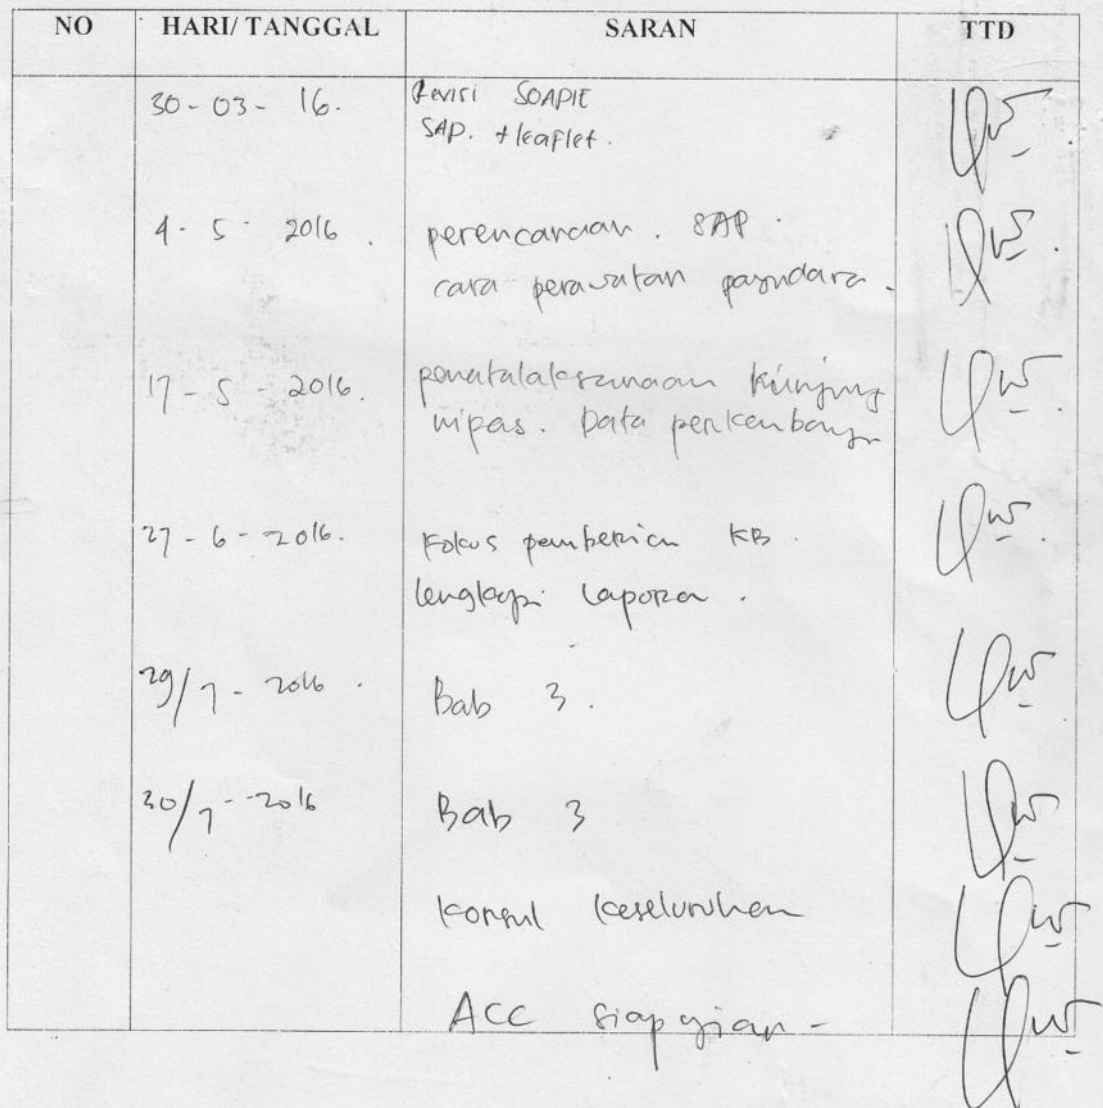 NO HARI/ TANGGAL SARAN TTD
30-03-16. Revisi SOAPIE
SAP. + leaflet.
4-5-2016. perencanaan. SAP.
cara perawatan payudara.
17-5-2016. penatalaksanaan kunjung
nifas. Data perkembang
27-6-2016. Fokus pemberian KB.
lengkapi laporan.
29/7-2016. Bab 3.
30/7-2016 Bab 3
Konsul keseluruhan
ACC siap ujian -